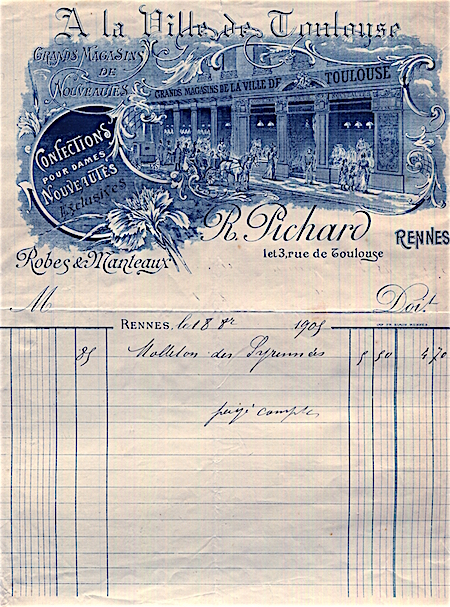 A la Ville de Toulouse
GRANDS MAGASINS
DE
NOUVEAUTÉS
GRANDS MAGASINS DE LA VILLE DE TOULOUSE
CONFECTIONS
POUR DAMES
NOUVEAUTES
Exclusives
R. Pichard
RENNES
1 et 3, rue de Toulouse
Robes & Manteaux
M
Doit
RENNES, le 18 8re 1905
85 Molleton des Pyrennées 5 50 4 70
payé compt